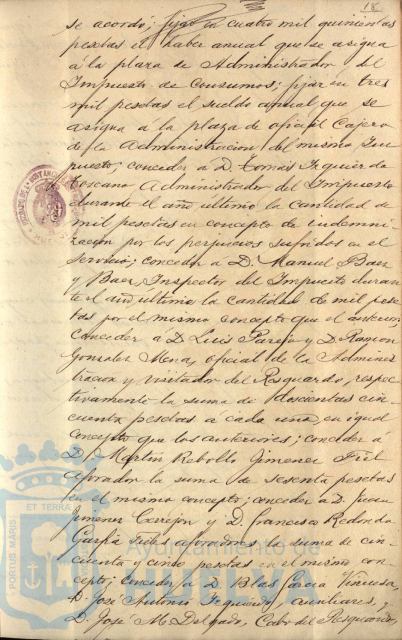 18
se acordó: fijar en cuatro mil quinientas
pesetas el haber anual que se asigna
á la plaza de Administrador del
Impuesto de Consumos; fijar en tres
mil pesetas el sueldo anual que se
asigna á la plaza de oficial Cajero
de la Administracion del mismo Im
puesto; conceder á D. Tomás Izquierdo
Toscano Administrador del Impuesto
durante el año ultimo la cantidad de
mil pesetas en concepto de indemni-
zacion por los perjuicios sufridos en el
servicio; conceder á D. Manuel Baez
y Baez, Inspector del Impuesto duran
te el año ultimo la cantidad de mil pese
tas por el mismo concepto que el anterior;
conceder á D. Luis Parejo y D. Ramon
Gonzalez Mena, oficial de la Adminis
tracion y visitador del Resguardo, respec-
tivamente la suma de doscientas cin
cuenta pesetas á cada uno, en igual
concepto que los anteriores; conceder á
D. Martin Rebollo Jimenez Fiel
aforador la suma de sesenta pesetas
en el mismo concepto; conceder á D. Juan
Jimenez Carrejon y D. Francisco Redondo
fieles aforadores la suma de cin
cuenta y cinco pesetas en el mismo con
cepto; conceder á D. Blas Garcia
D. José Antonio Izquierdo, Auxiliares, y
D. José M. Delgado, Cabo del Resguardo,
ET TERRA
PORTUS MARIS
Ayuntamiento de
HUELVA